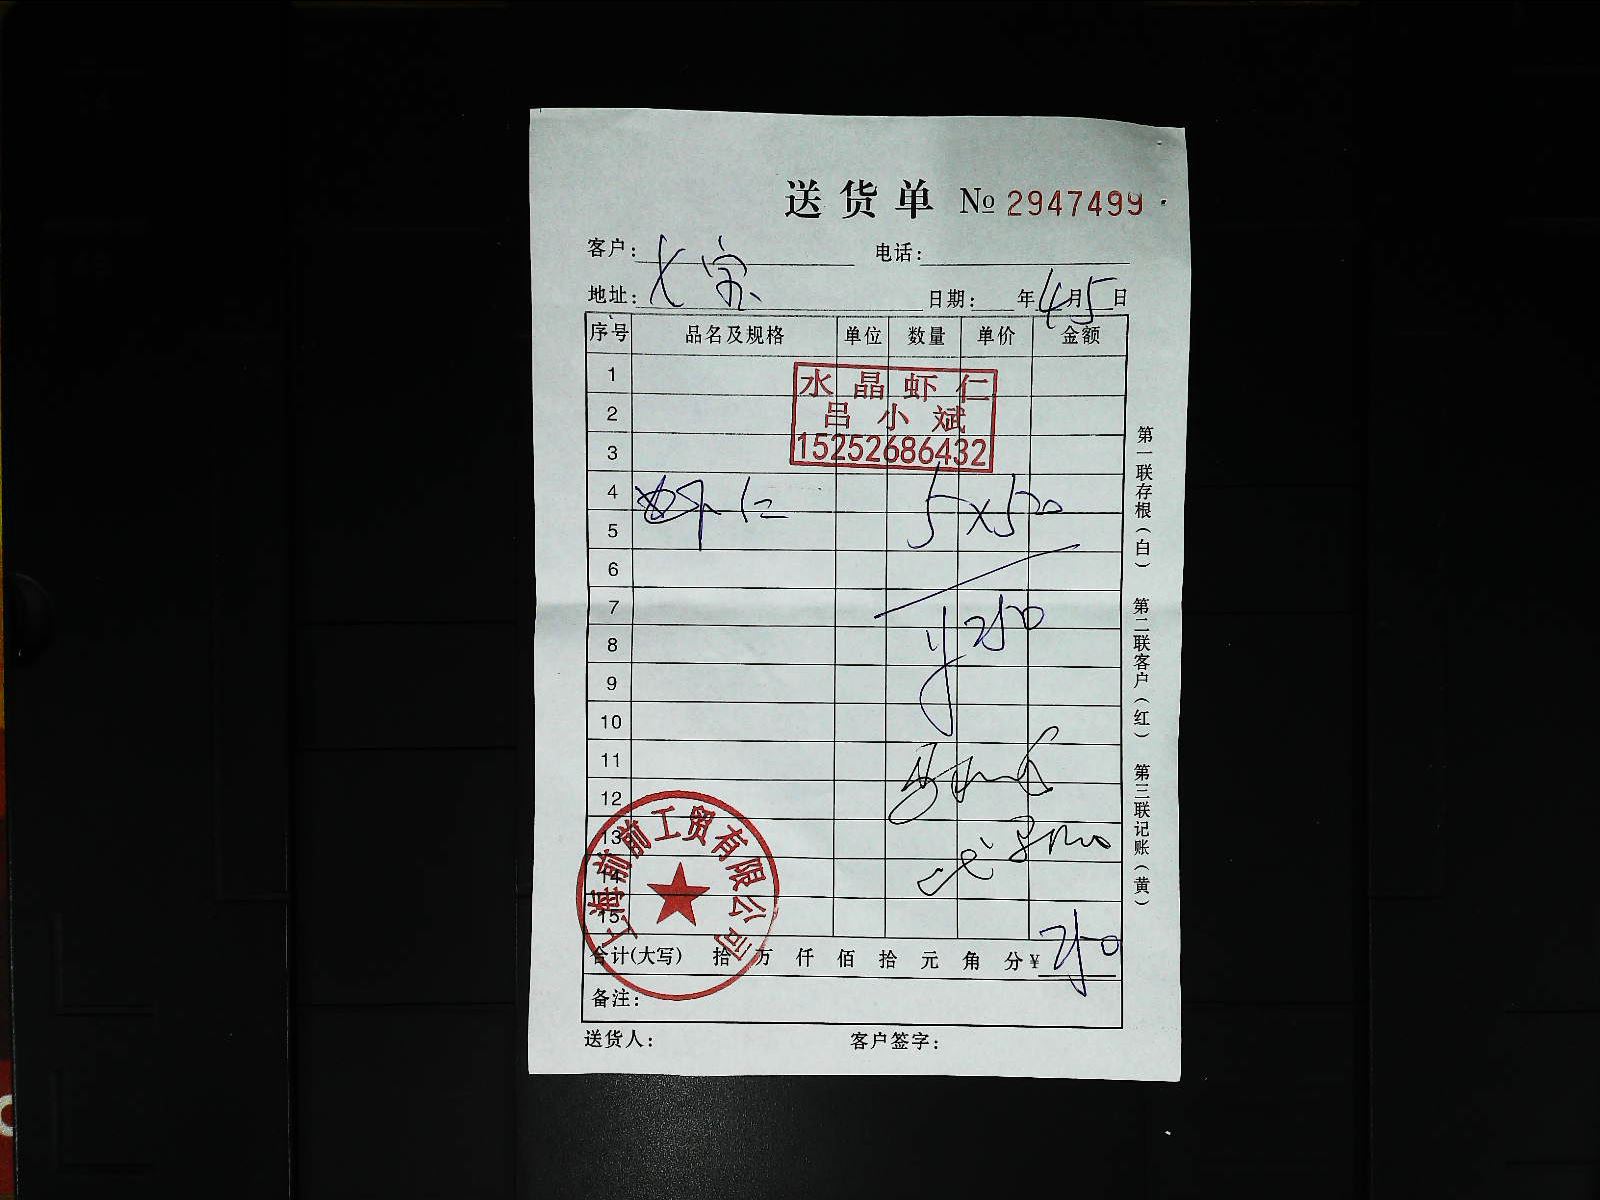 送货单 № 2947499
客户：
电话：
地址：
日期： 年 4 月 5 日
序号 品名及规格 单位 数量 单价 金额
1
水晶虾仁
2
吕小斌
3
15252686432
4
虾仁 5×50
5
6
7
¥250
8
9
10
11
12
13
14
15
上海前前工贸有限公司
合计(大写) 拾 万 仟 佰 拾 元 角 分 ¥ 250
备注：
送货人：
客户签字：
第一联存根（白） 第二联客户（红） 第三联记账（黄）